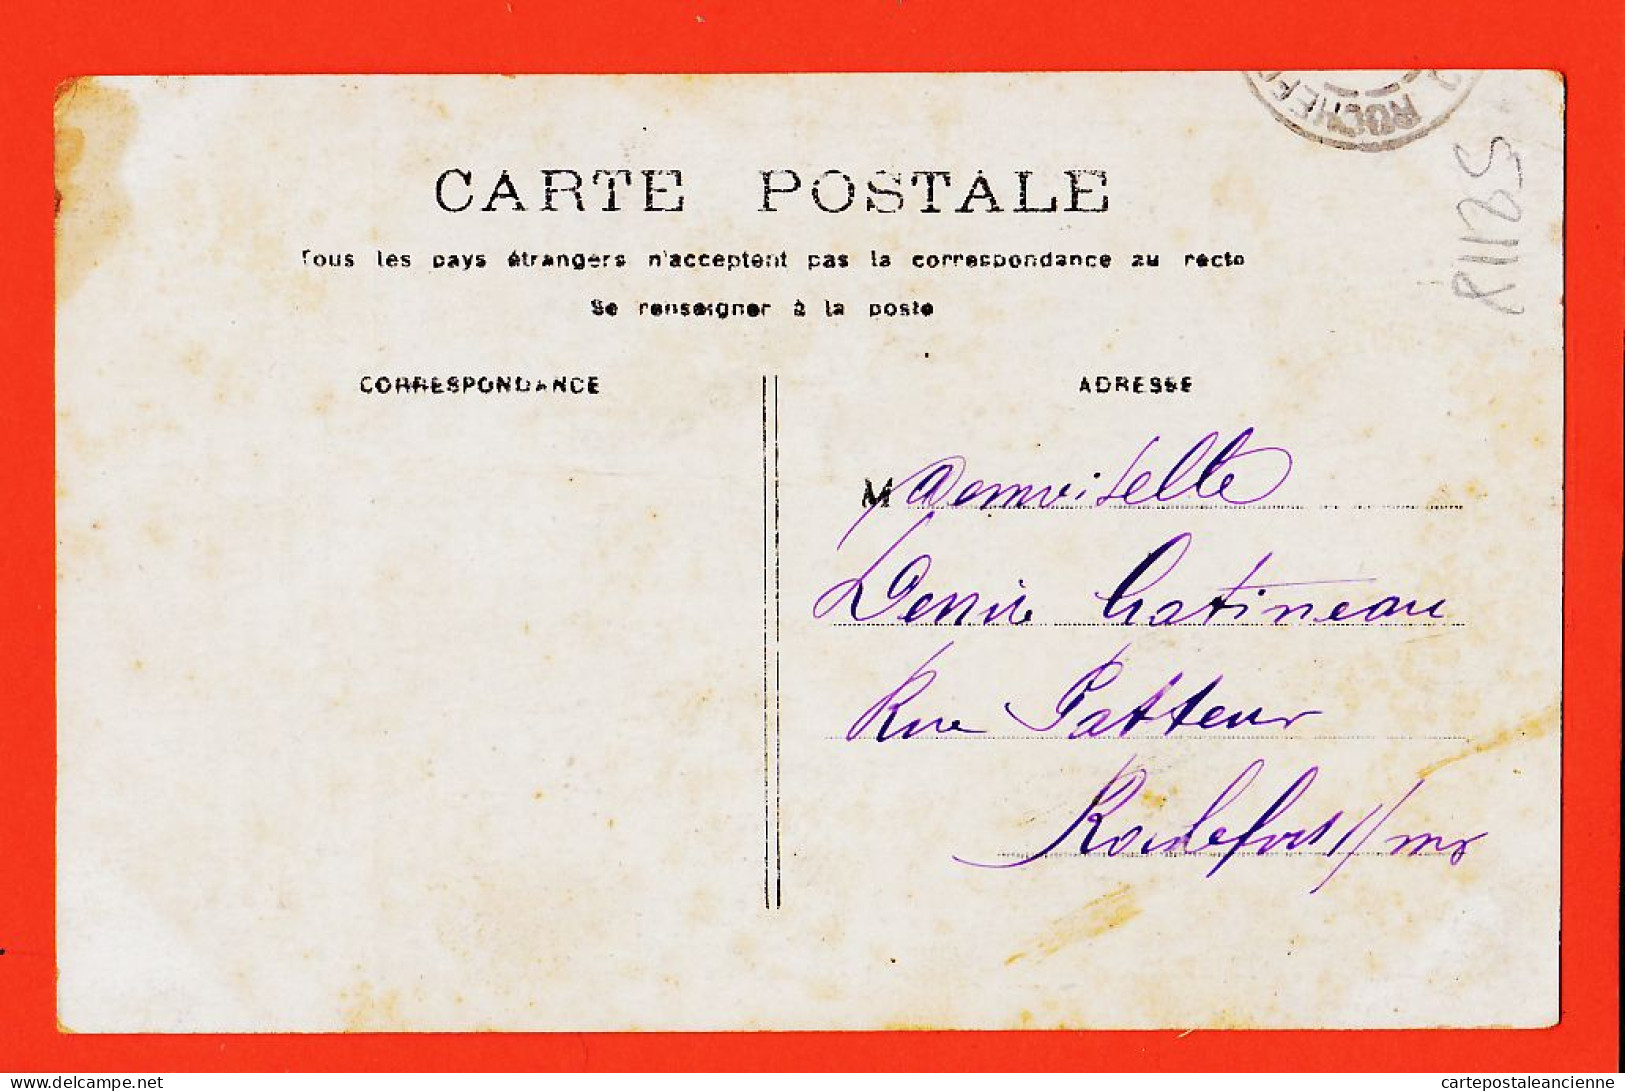 ROCHEF
CARTE POSTALE
Tous les pays étrangers n'acceptent pas la correspondance au recto
Se renseigner à la poste
CORRESPONDANCE
ADRESSE
Mademoiselle
Denise Gatineau
Rue Patteur
Rochefort s/mr
delcampe.net
cartepostaleancienne